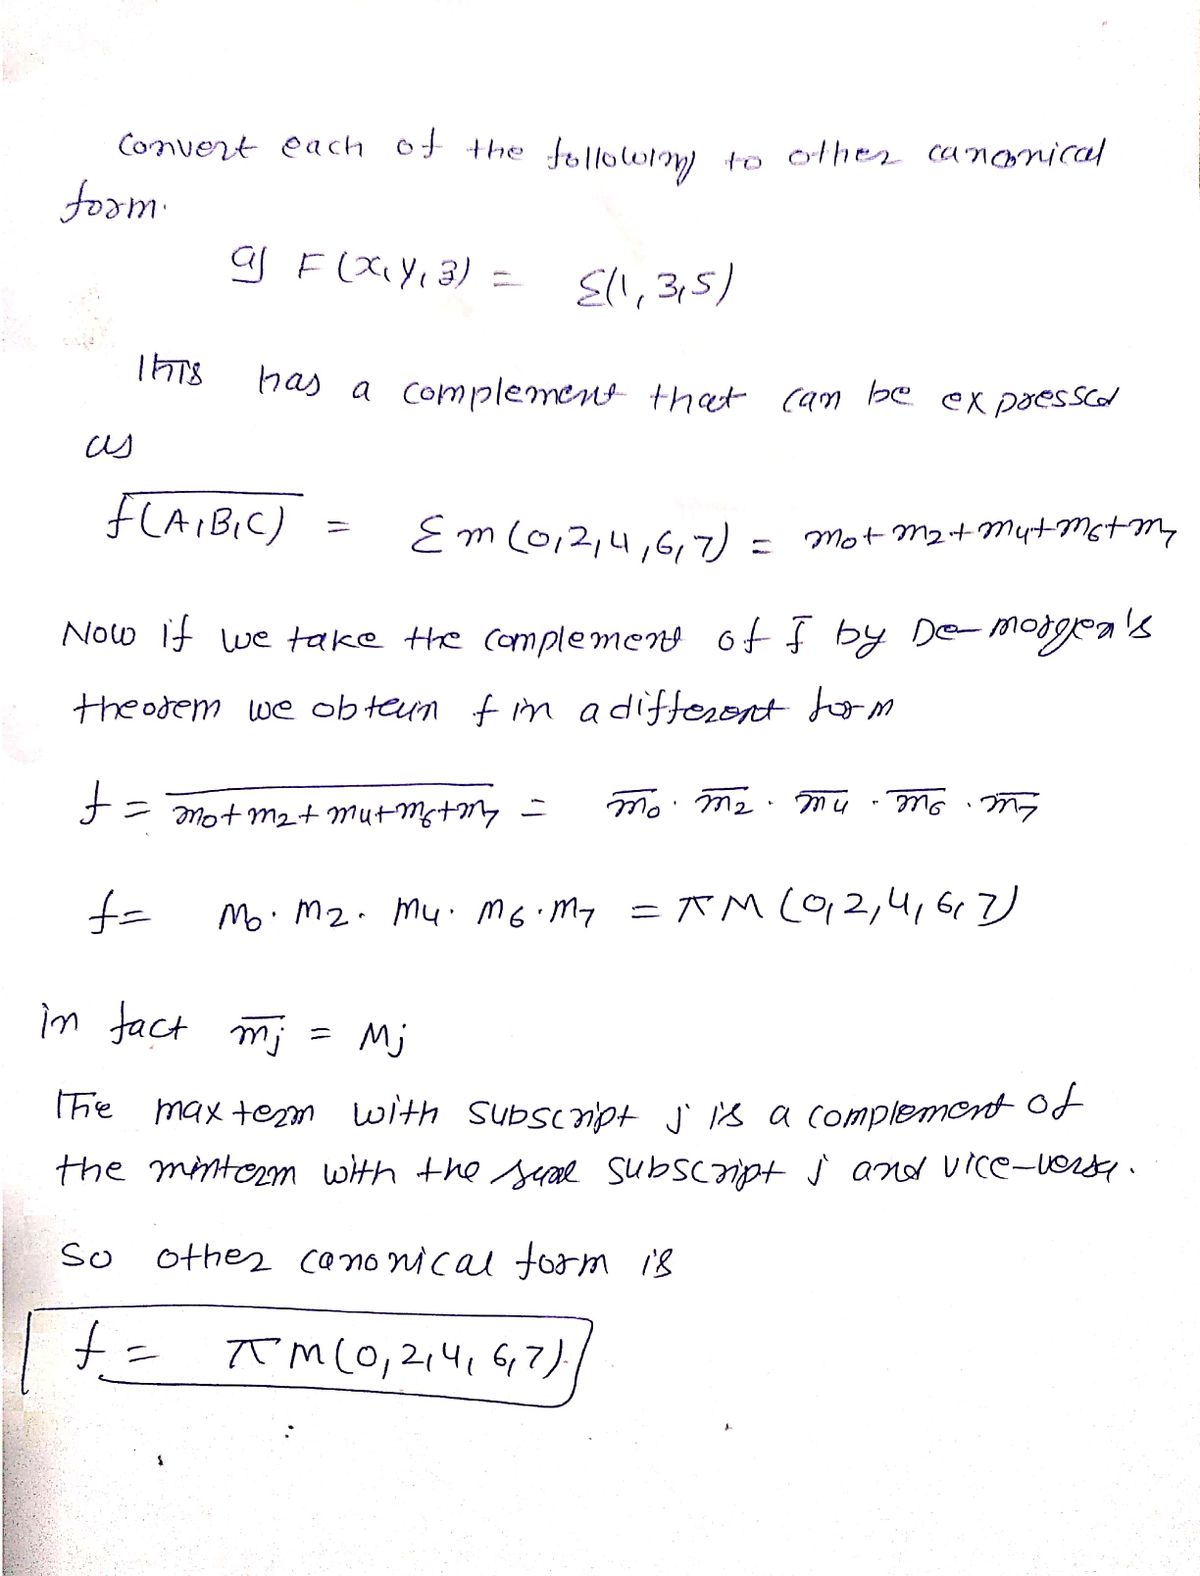 Convert each of the following to other canonical
form.
a) F(x,y,z) = Σ(1,3,5)
This has a complement that can be expressed
as
f̅(̅A̅,̅B̅,̅C̅)̅ = Σm(0,2,4,6,7) = m0+m2+m4+m6+m7
Now if we take the complement of f̅ by De-morgen's
theorem we obtain f in a different form
f = m̅0̅+̅m̅2̅+̅m̅4̅+̅m̅6̅+̅m̅7̅ = m̅0̅ . m̅2̅ . m̅4̅ . m̅6̅ . m̅7̅
f = M0 . M2 . M4 . M6 . M7 = πM(0,2,4,6,7)
in fact m̅j̅ = Mj
The max term with subscript j is a complement of
the minterm with the same subscript j and vice-versa.
So other canonical form is
f = πM(0,2,4,6,7).